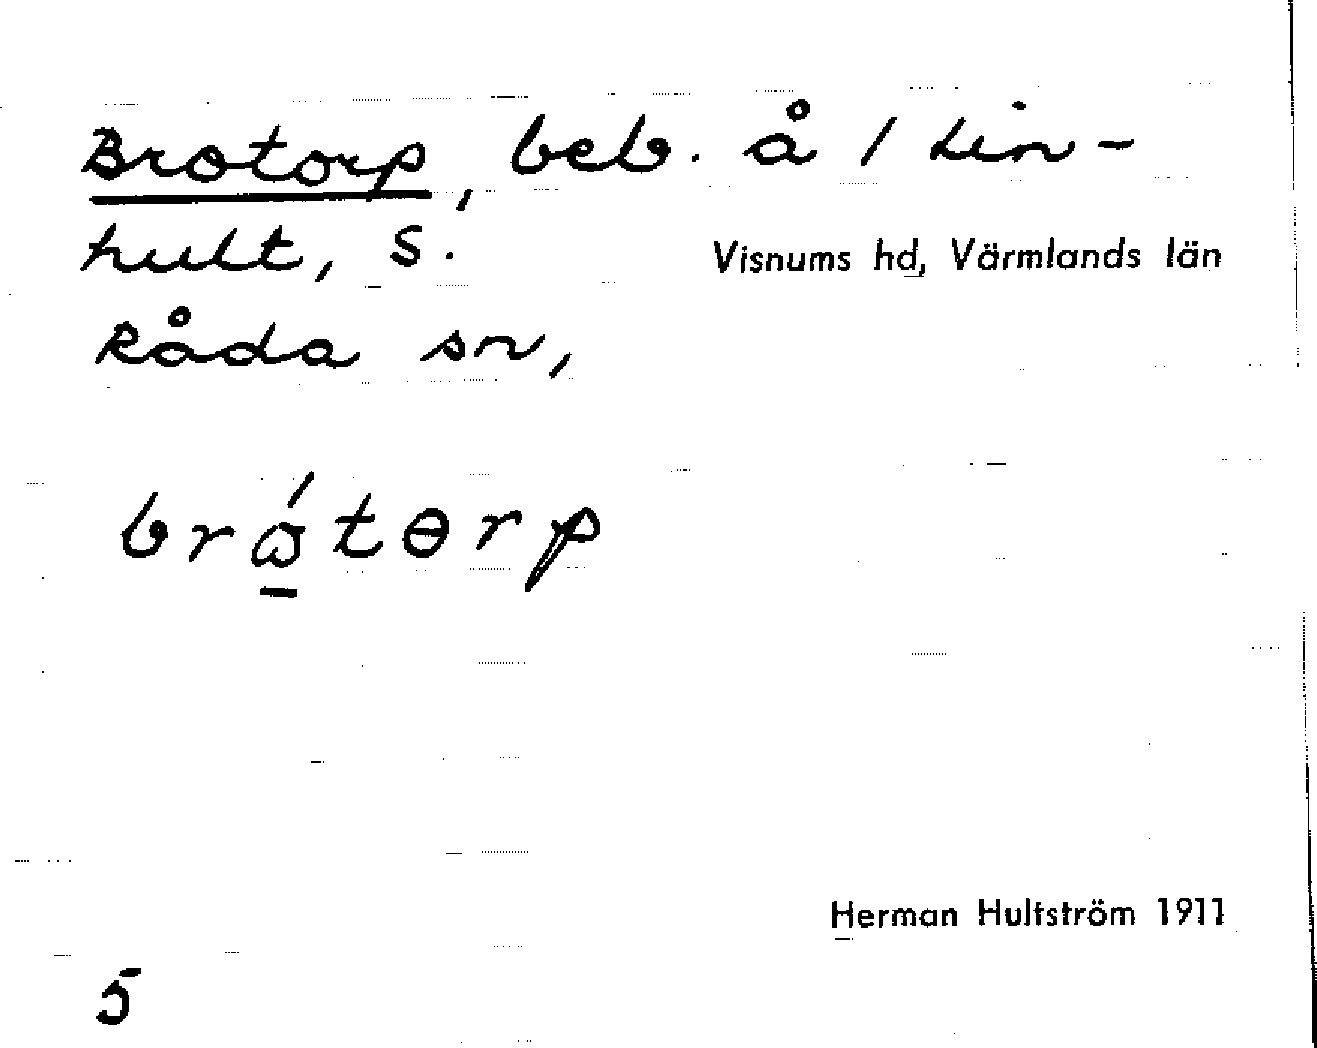 Brotorp, beb. å 1 Lin-
hult, S.
Visnums hd, Värmlands län
Råda sn,
brώ̲tɵrp
Herman Hultström 1911
5